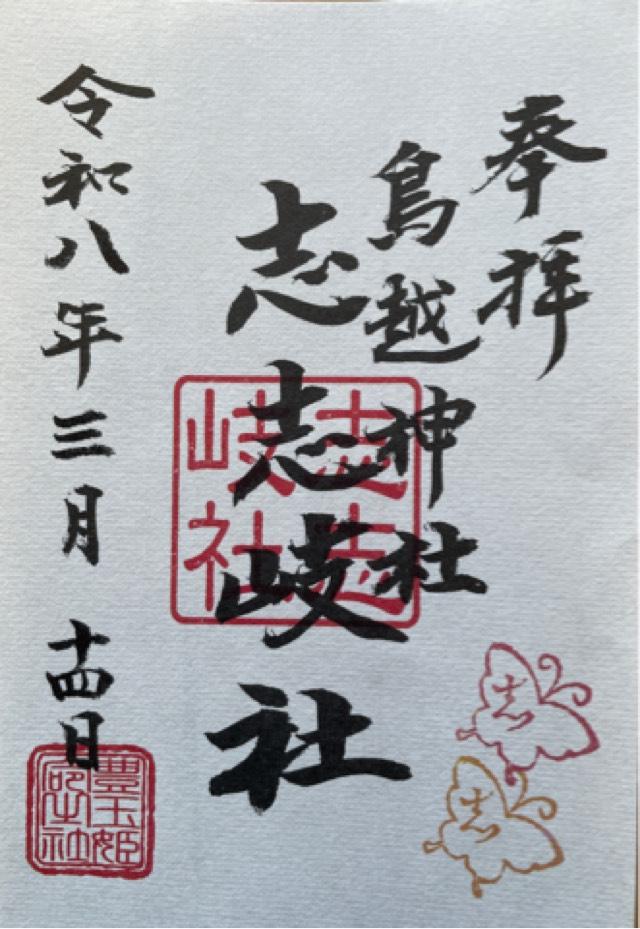 奉拝
鳥越神社
志志岐社
志志岐社
令和八年三月十四日
豊玉姫神社
志
志